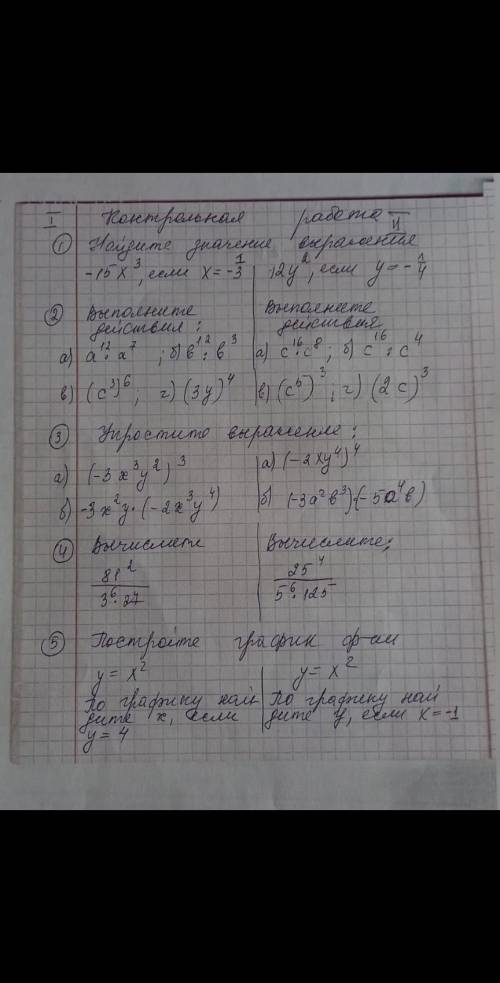 I Контрольная работа II
① Найдите значение выражения
-15x³, если x = -1/3 | 12y², если y = -1/4
② Выполните действия: | Выполните действия
а) a¹² · a⁷ ; б) b¹² : b³ | а) c¹⁶ · c⁸ ; б) c¹⁶ : c⁴
в) (c³)⁶ ; г) (3y)⁴ | в) (c⁵)³ ; г) (2c)³
③ Упростите выражение:
а) (-3x³y²)³ | а) (-2xy⁴)⁴
б) -3x²y · (-2x³y⁴) | б) (-3a²b³)·(-5a⁴b)
④ Вычислите | Вычислите;
81² / 3⁶ · 27 | 25⁴ / 5⁶ · 125
⑤ Постройте график ф-ии
y = x² | y = x²
По графику най- | По графику най
дите x, если | дите y, если x = -1
y = 4